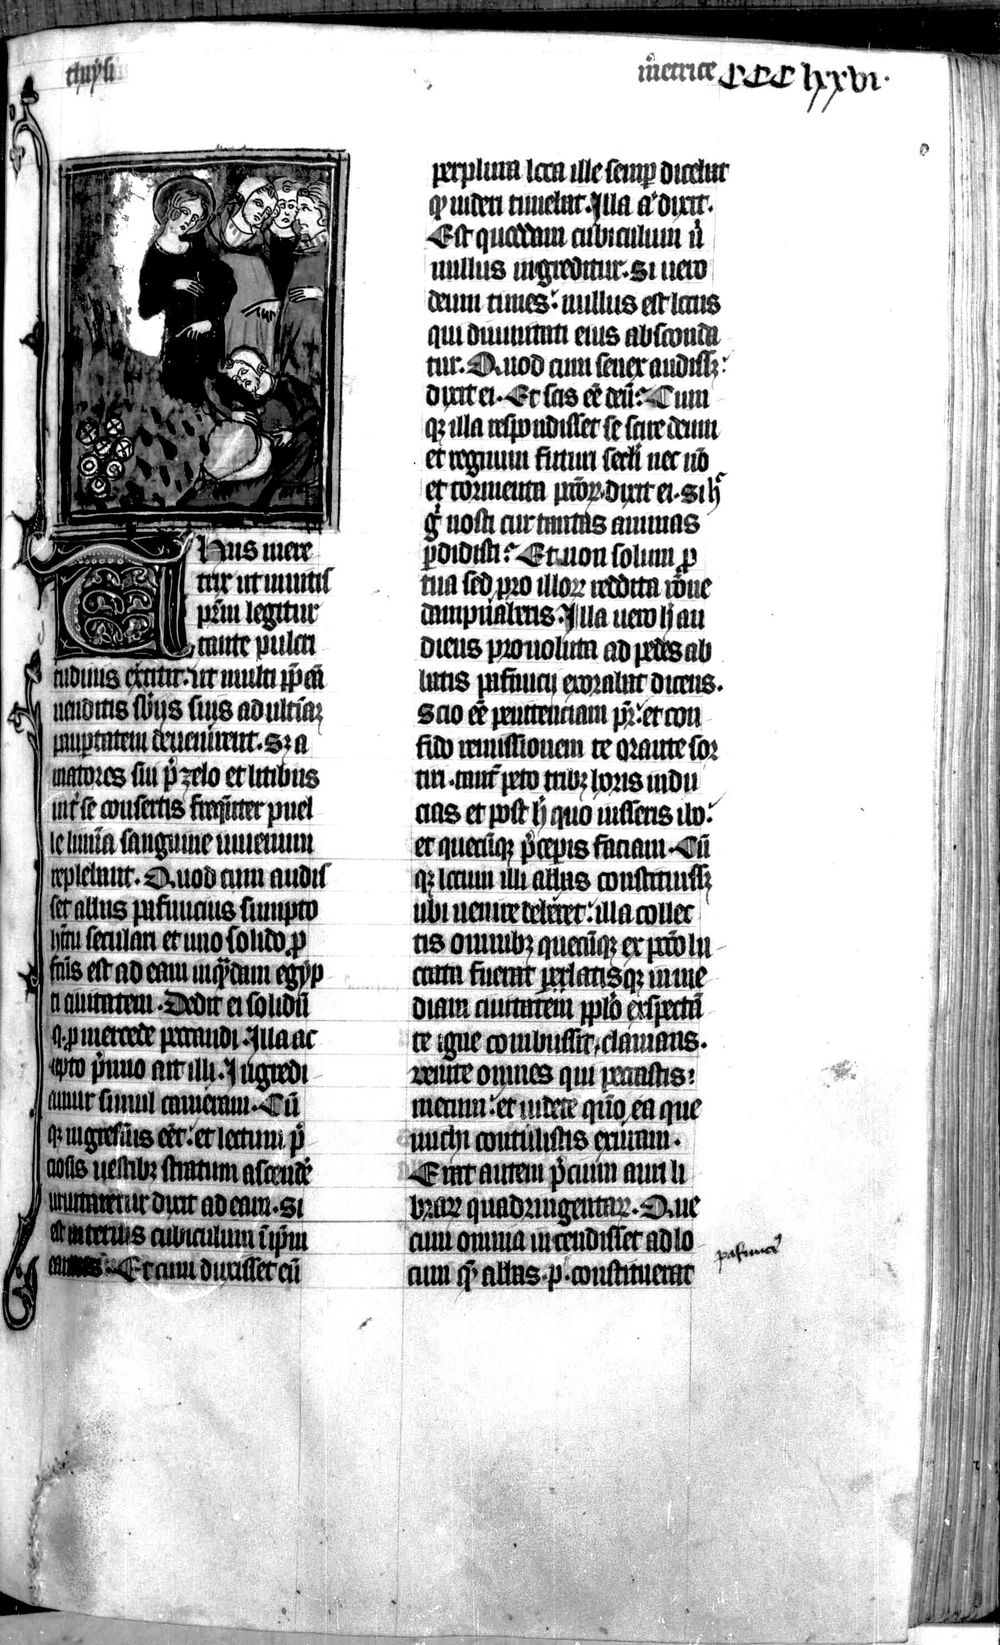 thaysis
meretrice CCClxxvi.
Thais mere
trix ut in uitis
prm legitur
tante pulcri
tudinis extitit. ut multi pp eā
uenditis sb̄ijs suis ad ultīaʒ
paup̄tatem deuenirent. Sʒ a
matores sui p̄ zelo et litibus
int̄ se consertis freqn̄ter puel
le limīa sanguine iuuenum
replebant. Quod cum audis
set abbas pafnucius sumpto
hītu seculari et uno solido ꝓ
fcūs est ad eam in qͥdam egyp
ti ciuitatem. Dedit ei solidū
q. ꝓ mercede peccandi. Illa ac
cepto p̄mio ait illi. Ingredi
amur simul cameram. Cū
qʒ ingressus eēt: et lectum p̄
ciosis uestibʒ stratum ascende
inuitaretur dixit ad eam. Si
est interius cubiculum in ip̄m
eamus. Et cum duxisset eū
per plura loca ille semp̄ dicebat
qͥ uideri timebat. Illa aͥ dixit.
Est quoddam cubiculum ū
nullus ingreditur. Si uero
deum times: nullus est locus
qui diuinitati eius absconda
tur. Quod cum senex audissʒ:
dixit ei. Et scis eē deū: Cum
qʒ illa respondisset se scire deum
et regnum futuri scl̄i nec nō
et tormenta pctōꝝ. dixit ei. Si hͨ
gͦ nosti cur tantas animas
ꝑdidisti: Et non solum ꝓ
tua sed pro illoꝝ reddita rōne
dampnaberis. Illa uero h̄ au
diens prouoluta ad pedes ab
batis pafnucij exorabat dicens.
Scio eē penitenciam pr̄. et con
fido remissionem te orante sor
tiri. tmͦ peto tribʒ horis indu
cias et post h̄ quo iusseris ibo:
et quecūqʒ p̄ceperis faciam. Cū
qʒ locum illi abbas constituissʒ
ubi uenire deberet: illa collec
tis omnibʒ quecūqʒ ex pctō lu
crata fuerat perlatisqʒ in me
diam ciuitatem pplo exspectā
te igne combussit, clamans.
Venite omnes qui peccastis
mecum: et uidete quō ea que
michi contulistis exuram.
Erat autem p̄cium auri li
braꝝ quadringentaꝝ. Que
cum omnia incendisset ad lo
cum qͥ abbas .p. constituerat
pafnuci9